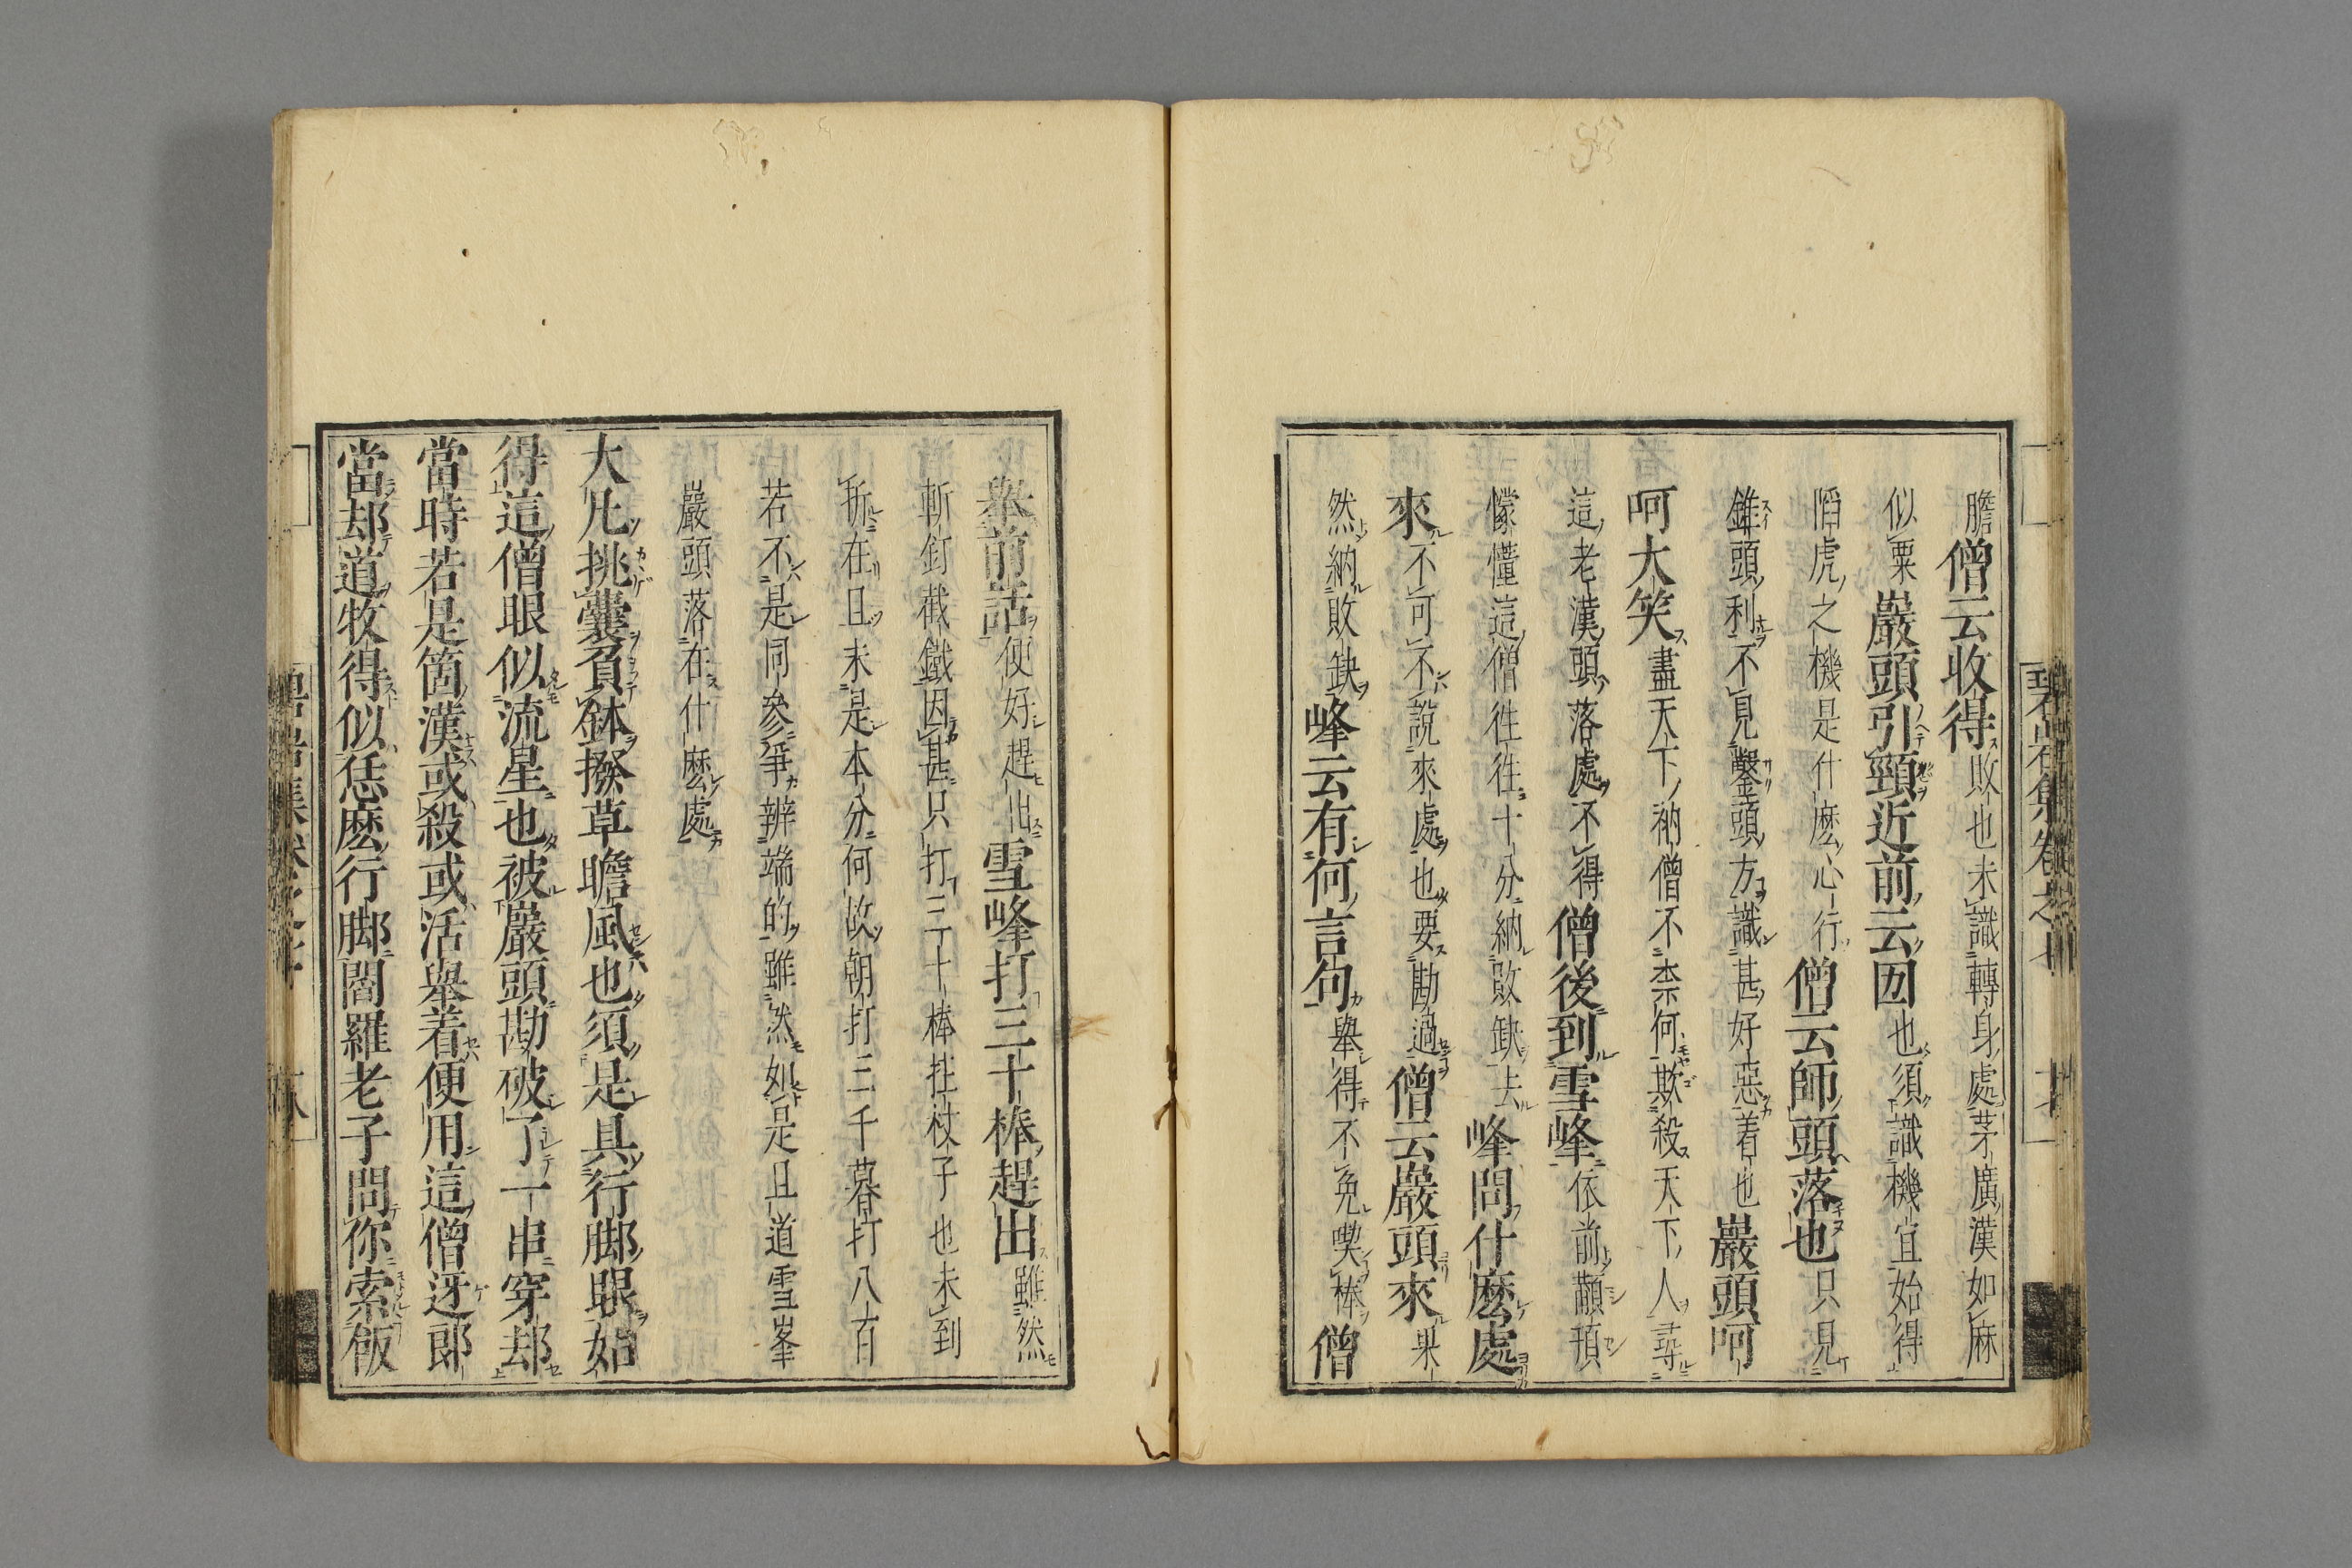 膽僧云收得敗也未識轉身處茅廣漢如麻
似粟巖頭引頸近前云㘞也須識機宜始得
陷虎之機是什麽心行僧云師頭落也只見
錐頭利不見鑿頭方識甚好惡着也巖頭呵
呵大笑盡天下衲僧不柰何欺殺天下人尋
這老漢頭落處不得僧後到雪峰依前顢頇
懞懂這僧徃徃十分納敗缺去峰問什麽處
來不可不說來處也要勘過僧云巖頭來果
然納敗缺峰云有何言句舉得不免喫棒僧
舉前話便好趕出雪峰打三十棒趕出雖然
斬釘截鐵因甚只打三十棒拄杖子也未到
折在且未是本分何故朝打三千暮打八百
若不是同參爭辨端的雖然如是且道雪峯
巖頭落在什麽處
大凡挑囊負鉢撥草瞻風也須是具行脚眼始
得這僧眼似流星也被巖頭勘破了一串穿却
當時若是箇漢或殺或活舉着便用這僧迓郎
當却道收得似恁麽行脚閻羅老子問你索飯